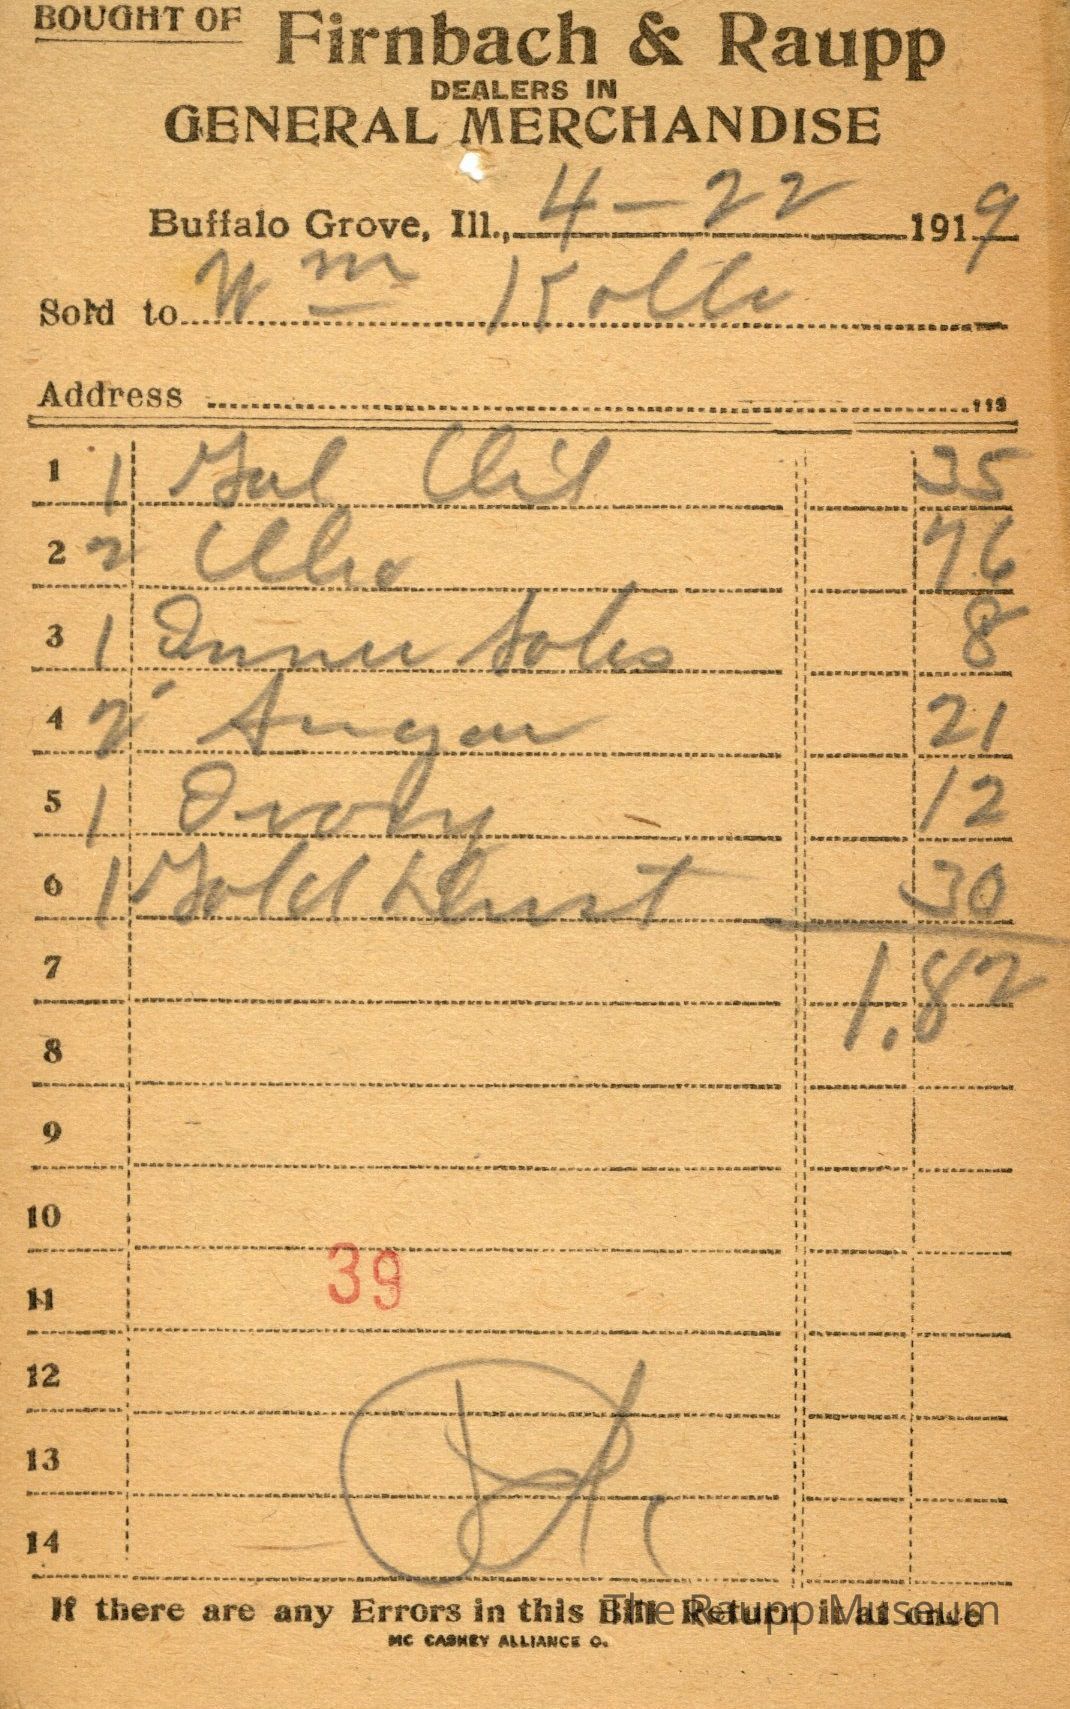 BOUGHT OF Firnbach & Raupp
DEALERS IN
GENERAL MERCHANDISE
Buffalo Grove, Ill., 4-22 1919
Sold to Wm Kolle
Address 113
1 1 Gal Oil 35
2 2 76
3 1 Inner Soles 8
4 2 Sugar 21
5 1 Ivory 12
6 1 Gold Dust 30
7 1.82
8
9
10
39
11
12
13
14
If there are any Errors in this Bill Return it at once
The Raupp Museum
MC CASKEY ALLIANCE O.